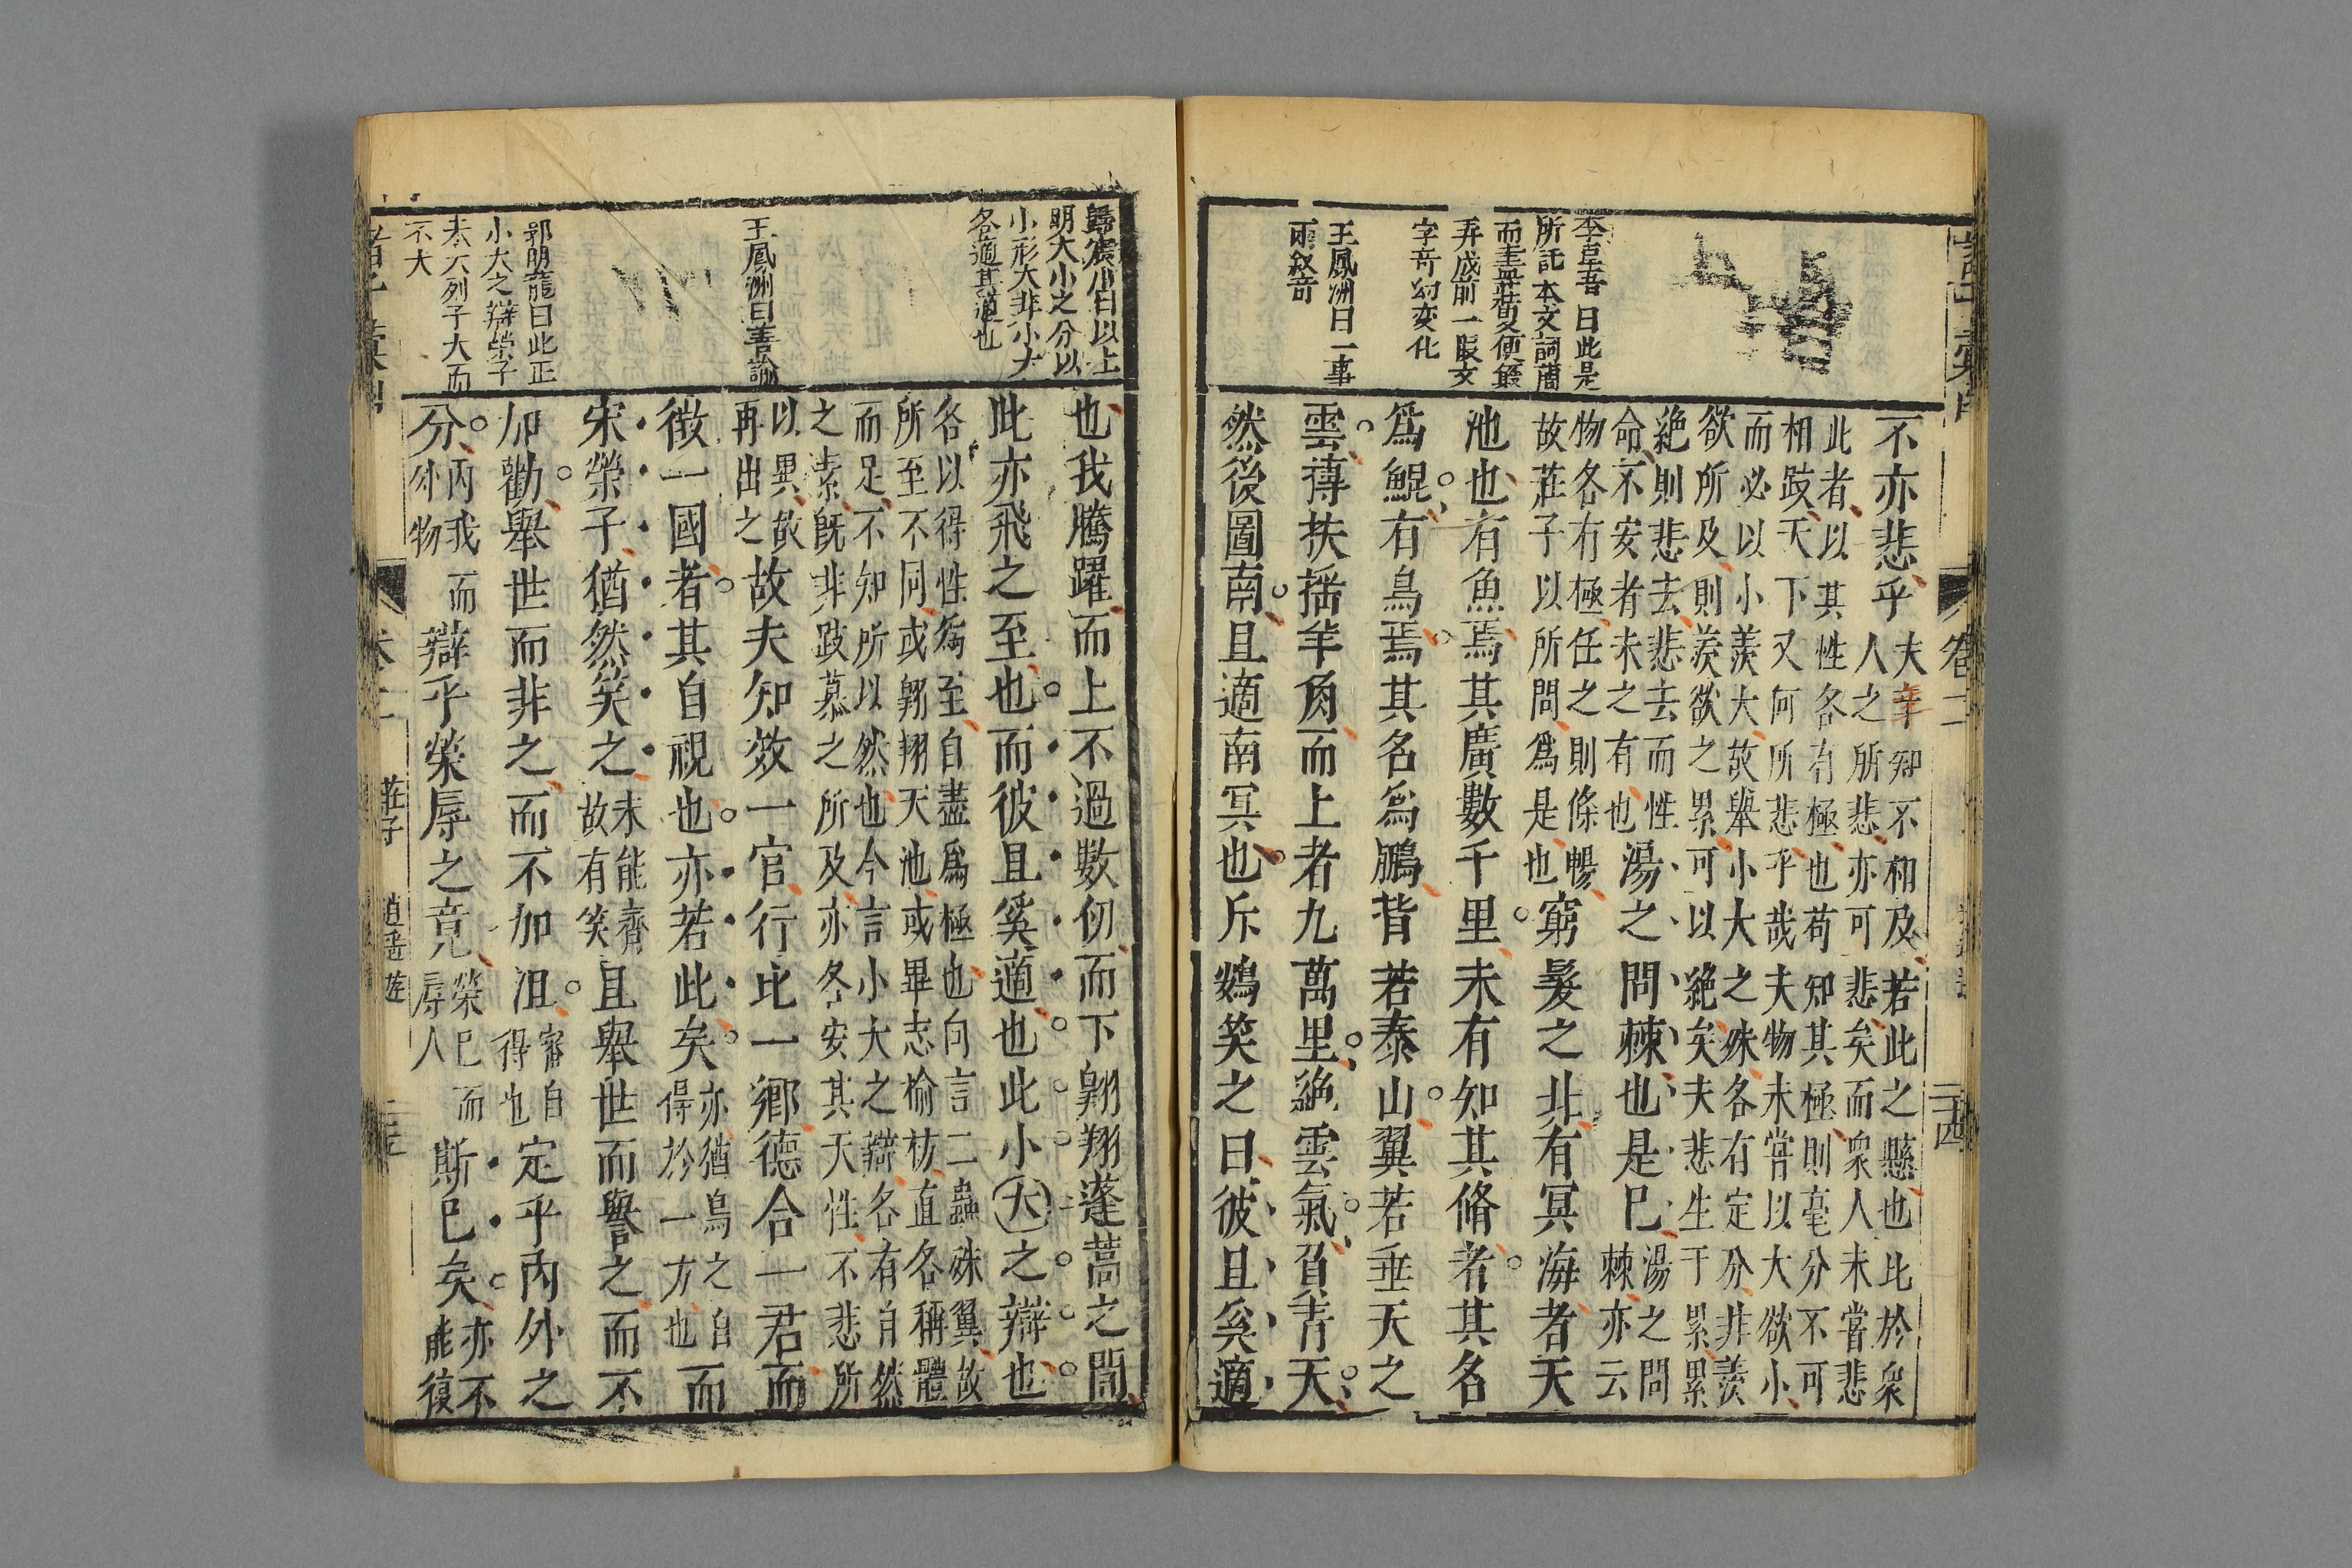 李卓吾曰此是
所託本文詞
而
弄成前一段文
字奇幻変化
王鳳洲曰一事
兩叙奇
不亦悲乎
夫年知不相及若此之懸也比於衆
人之所悲亦可悲矣而衆人未嘗悲
此者以其性各有極也苟知其極則毫分不可
相跂天下又何所悲乎哉夫物未嘗以大欲小
而必以小羨大故舉小大之殊各有定分非羨
欲所及則羨欲之累可以絶矣夫悲生于累累
絶則悲去悲去而性
命不安者未之有也
湯之問棘也是巳
湯之問
棘亦云
物各有極任之則條暢
故莊子以所問爲是也
窮髮之北有冥海者天
池也有魚焉其廣數千里未有知其脩者其名
爲鯤有鳥焉其名爲鵬背若泰山翼若垂天之
雲摶扶揺羊角而上者九萬里絶雲氣負青天
然後圖南且適南冥也斥鷃笑之曰彼且奚適
歸震川曰以上
明大小之分以
小形大非小大
各適其道也
王鳳洲曰善諭
郭明龍曰此正
小大之辯榮子
未大列子大而
不大
也我騰躍而上不過數仞而下翱翔蓬蒿之間
此亦飛之至也而彼且奚適也此小大之辯也
各以得性爲至自盡爲極也向言二蟲殊翼故
所至不同或翱翔天池或畢志榆枋直各稱體
而足不知所以然也今言小大之辯各有自然
之素既非跂慕之所及亦各安其天性不悲所
以異故
再出之
故夫知效一官行比一鄉德合一君而
徵一國者其自視也亦若此矣
亦猶鳥之自
得於一方也
而
宋榮子猶然笑之
未能齊
故有笑
且舉世而譽之而不
加勸舉世而非之而不加沮
審自
得也
定乎內外之
分
內我而
外物
辯乎榮辱之竟
榮巳而
辱人
斯巳矣
亦不
能復
莊子
逍遙遊